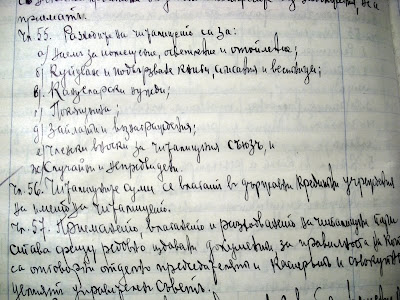 приматъ.
Чл. 55. Разходите на читалището са за:
а/ Наем за помещение, осветление и отопление;
б/ Купуване и подвързване книги, списания и вестници;
в/ Канцеларски нужди;
г/ Покъщнина;
д/ Заплати и възнаграждения;
е/ Членски вноски за Читалищния съюзъ, и
ж/ Случайни и непредвидени.
Чл. 56. Читалищните суми се влагатъ в държавни кредитни учреждения
на името на Читалището.
Чл. 57. Приемането, влагането и разходването на читалищни суми
става срещу редовно издавани документи, за правилността на които
са отговорни отделно председательтъ и Касиерътъ и съвокупно
целиятъ управителенъ Съветъ.